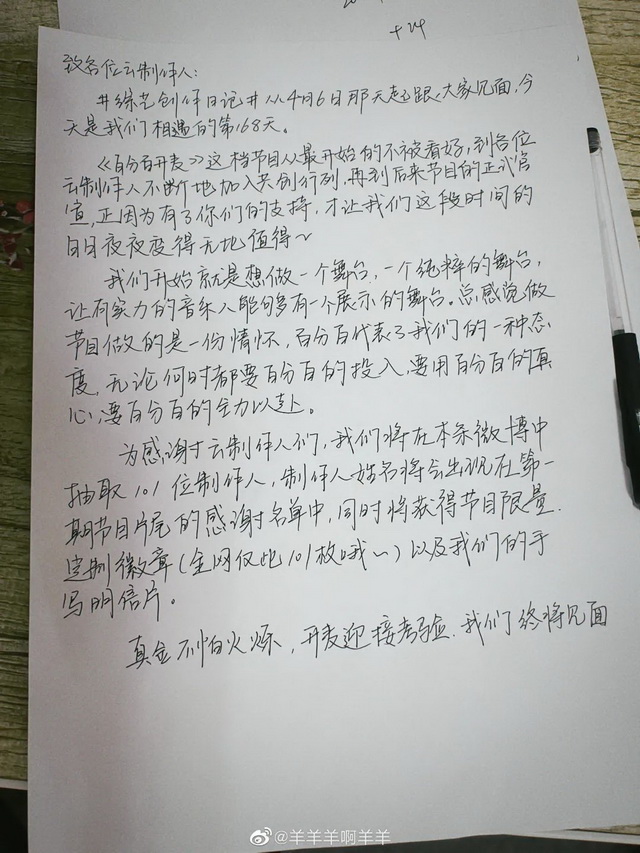 +24
致各位云制作人:
#综艺创作日记#从4月6日那天起跟大家见面,今
天是我们相遇的第168天。
《百分百开麦》这档节目从最开始的不被看好,到各位
云制作人不断地加入共创行列,再到后来节目的正式官
宣,正因为有了你们的支持,才让我们这段时间的
日日夜夜变得无比值得~
我们开始就是想做一个舞台,一个纯粹的舞台,
让有实力的音乐人能够多有一个展示的舞台。总感觉做
节目做的是一份情怀,百分百代表了我们的一种态
度,无论何时都要百分百的投入,要用百分百的真
心,要百分百的全力以赴。
为感谢云制作人们,我们将在本条微博中
抽取101位制作人,制作人姓名将会出现在第一
期节目片尾的感谢名单中,同时将获得节目限量
定制徽章(全网仅此101枚哦~)以及我们的手
写明信片。
真金不怕火炼,开麦迎接考验.我们终将见面
@羊羊羊啊羊羊